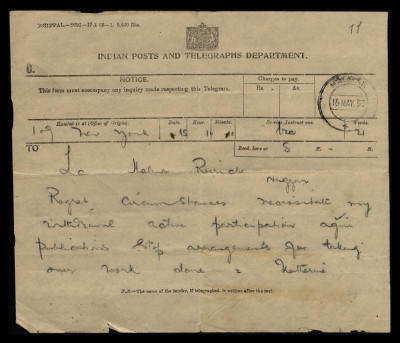 11
INDIAN POSTS AND TELEGRAPHS DEPARTMENT.
NOTICE.
Charges to pay.
This form must accompany any inquiry made respecting this Telegram.
Rs. As.
Handed in at (Office of Origin). Date Hour Minute Service Instructions Words
New York 15 21
TO
Recd. here at
Helena Roerich
Naggar
Regret circumstances necessitate my
withdrawal active participation agni
publications stop arrangements for taking
over work done = Katherine
N.B.—The name of the Sender, if telegraphed, is written after the text.